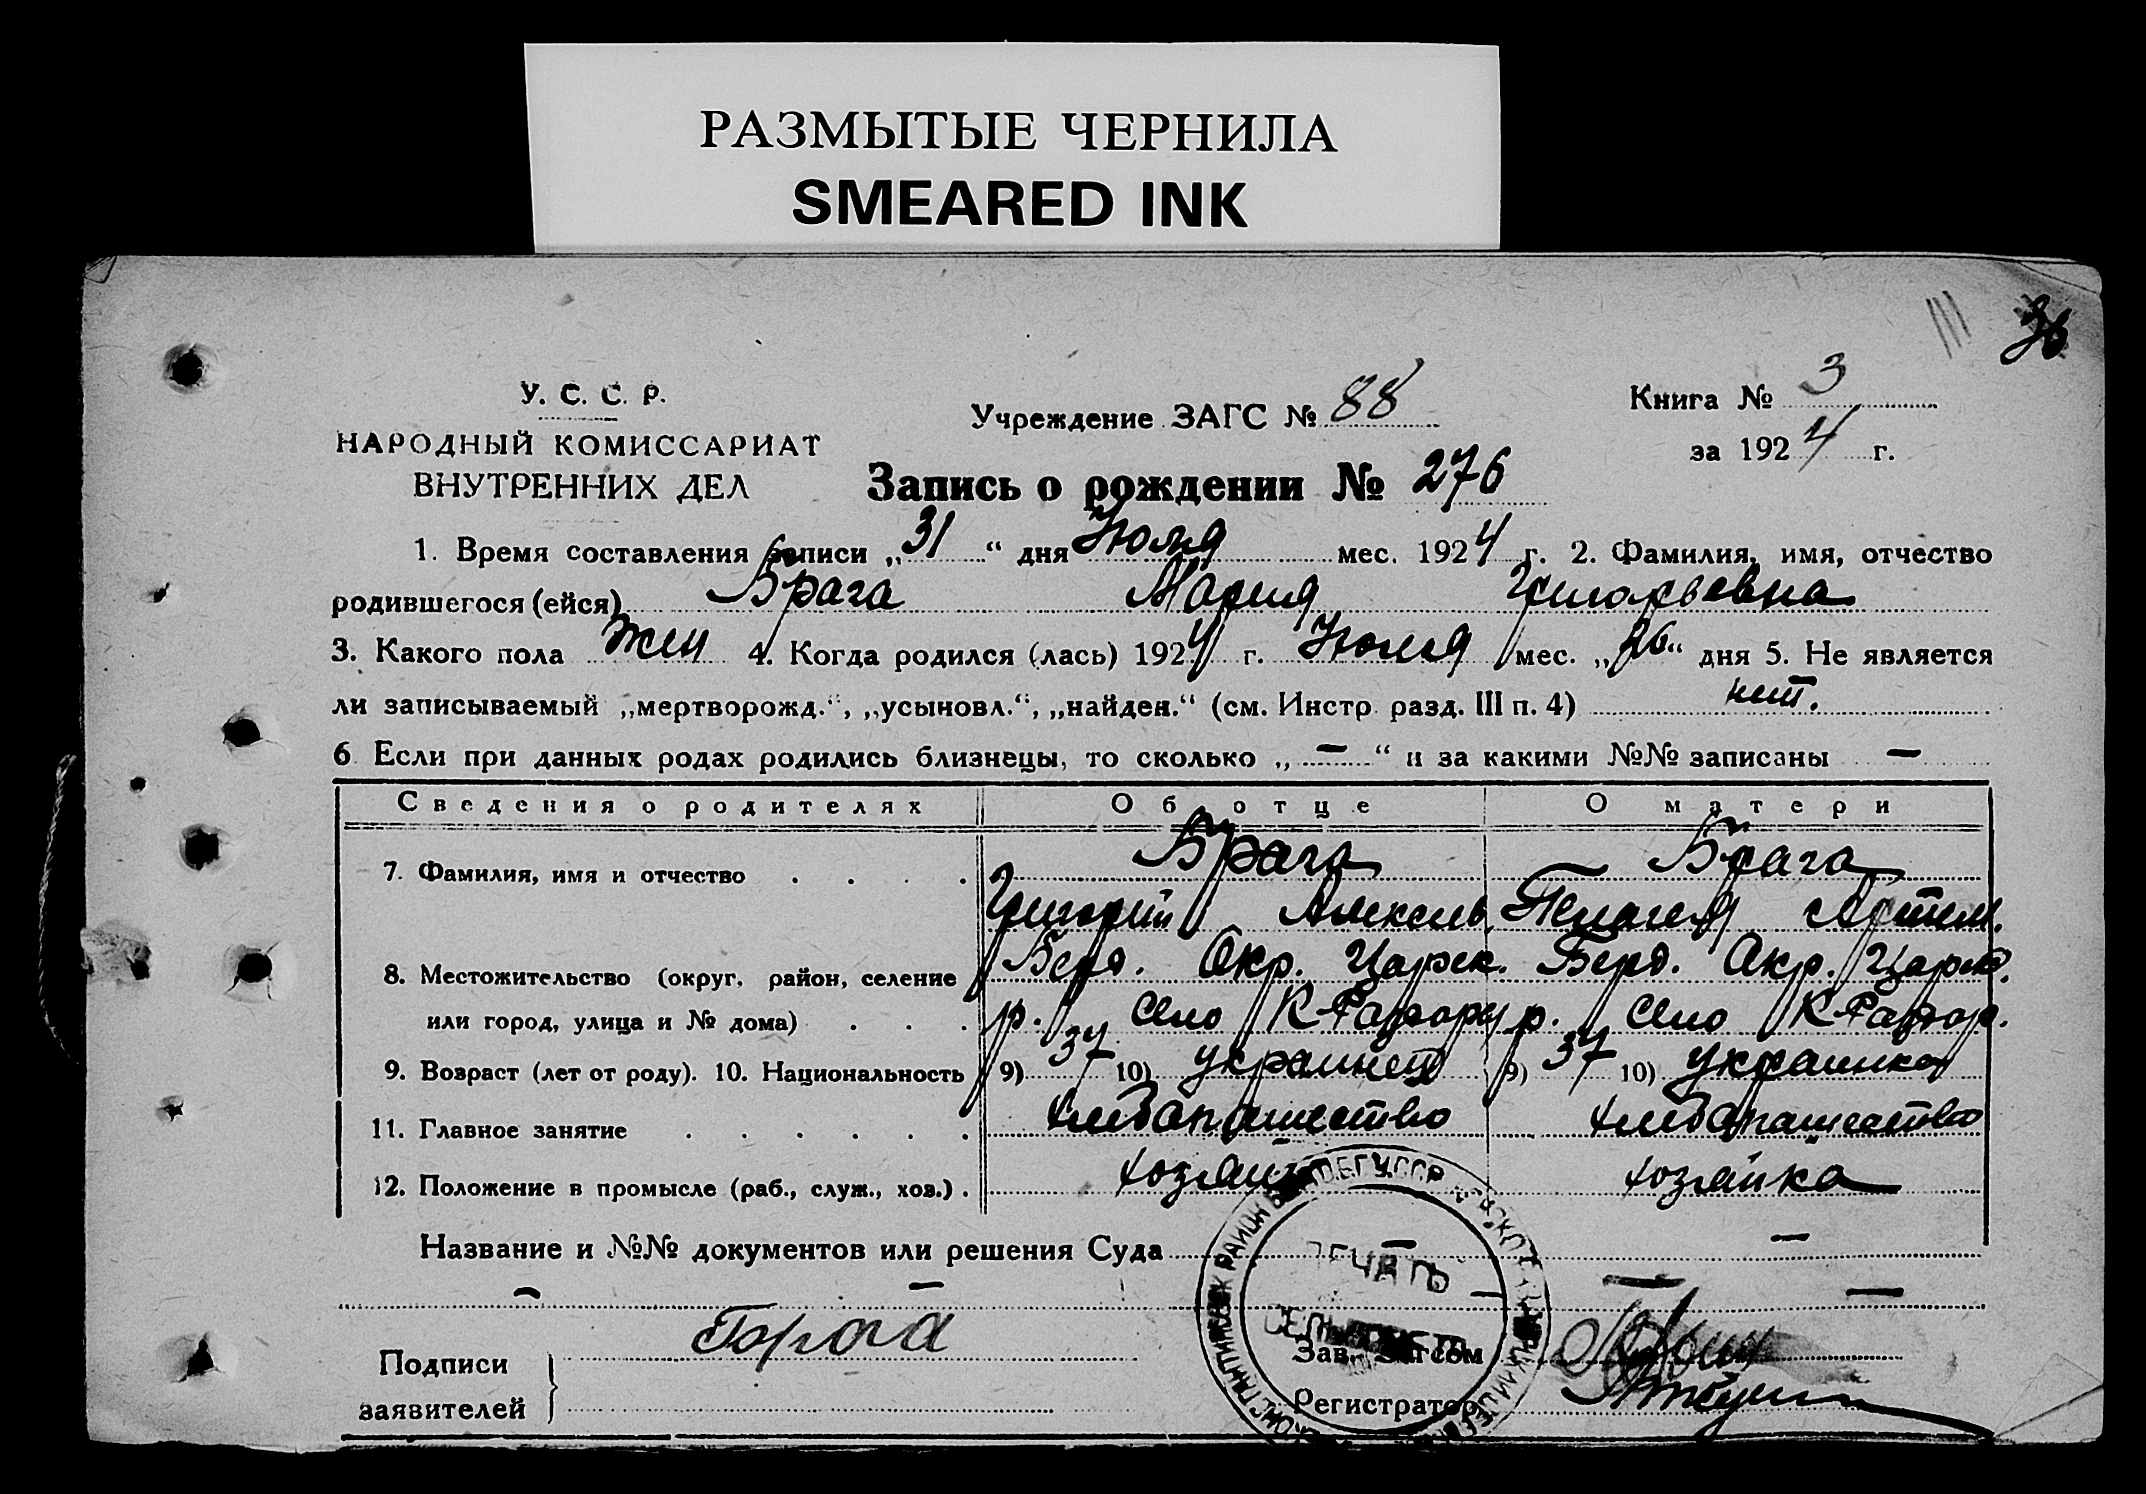 РАЗМЫТЫЕ ЧЕРНИЛА
SMEARED INK
36
У. С. С. Р.
НАРОДНЫЙ КОМИССАРИАТ
ВНУТРЕННИХ ДЕЛ
Учреждение ЗАГС № 88
Книга № 3
за 1924 г.
Запись о рождении № 276
1. Время составления записи „31“ дня Июля мес. 1924 г. 2. Фамилия, имя, отчество
родившегося (ейся) Брага Мария Григорьевна
3. Какого пола жен 4. Когда родился (лась) 1924 г. Июля мес. „26“ дня 5. Не является
ли записываемый „мертворожд.“, „усыновл.“, „найден.“ (см. Инстр. разд. III п. 4) нет.
6 Если при данных родах родились близнецы, то сколько „—“ и за какими №№ записаны —
Сведения о родителях Об отце О матери
7. Фамилия, имя и отчество . . . . Брага Брага
Григорий Алексеев. Пелагея Артем.
8. Местожительство (округ, район, селение Берд. Окр. Царек. Берд. Окр. Царек.
или город, улица и № дома) . . . р. село р. село
9. Возраст (лет от роду). 10. Национальность 9) 37 10) украинец 9) 37 10) украинка
11. Главное занятие . . . . . . хлебопашество хлебопашество
12. Положение в промысле (раб., служ., хоз.) . хозяин хозяйка
Название и №№ документов или решения Суда — —
— — — — —
Подписи
заявителей
Брага
ПЕЧАТЬ
Зав. Загсом
Регистратор